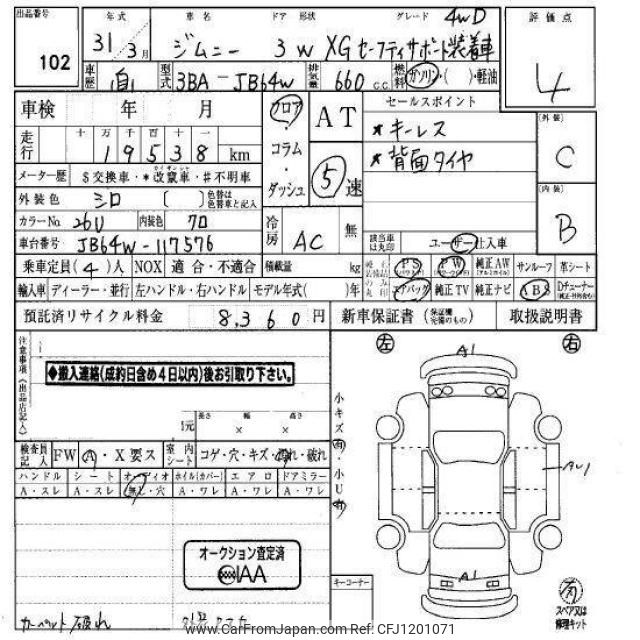 出品番号 102
年式 31年 3月
車名 ジムニー
ドア 形状 3 W
グレード 4WD
XG セーフティサポート装着車
評価点 4
車歴 自
型式 3BA - JB64W
排気量 660 c.c.
燃料 ガソリン・( )・軽油
車検 年 月
フロア・コラム・ダッシュ
AT
5速
セールスポイント
*キーレス
*背面タイヤ
外装 C
内装 B
走行 十 万 千 百 十 一
19538 km
メーター歴 $交換車・*改竄車・#不明車
外装色 シロ ( ) 色替は色替車と記入
カラーNo. 26U 内装色 クロ
冷房 AC 無
車台番号 JB64W-117576
該当車は丸印 ユーザー仕入車
乗車定員(4)人 NOX 適合・不適合 積載量 kg
PS PW 純正AW サンルーフ 革シート
輸入車 ディーラー・並行 左ハンドル・右ハンドル モデル年式( )年
エアバック 純正TV 純正ナビ ABS Dチューナー
預託済リサイクル料金 8,360円
新車保証書 (保証欄完備のもの) 取扱説明書
注意事項(出品店記入)
◆搬入連絡(成約日含め4日以内)後お引取り下さい。
長さ × 幅 × 高さ
検査員記入 FW A・X要ス
室内シート コゲ・穴・キズ・汚れ・破れ
ハンドル シート オーディオ ホイル(カバー) エアロ ドアミラー
A・スレ A・スレ 無・穴 A・ワレ A・ワレ A・ワレ
小キズ有・小U有
左 右
A1
AU1
A1
オークション査定済
IAA
キーコーナー
有
スペア又は修理キット
カーペット破れ
www.CarFromJapan.com Ref: CFJ1201071